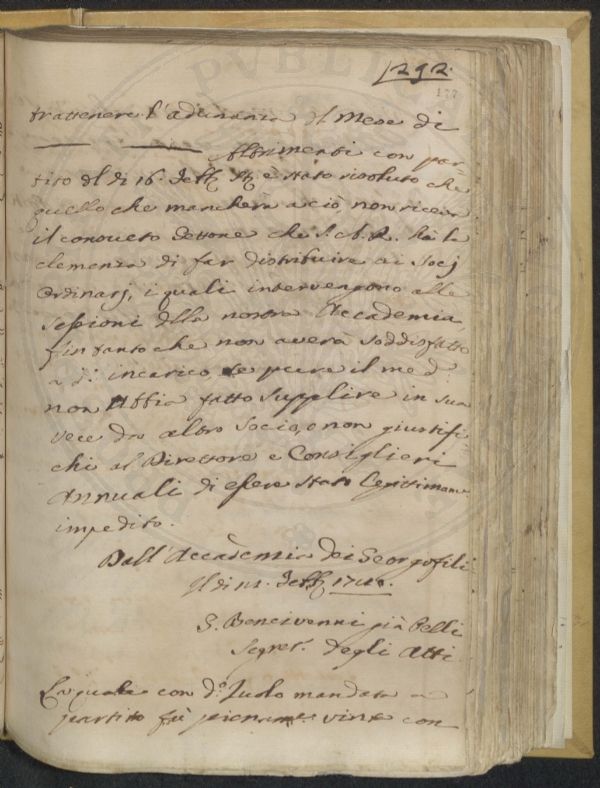 1292.
177
trattenere l'adunanza del Mese di
Altrimenti con par-
tito del di 16. Sett. è stato risoluto che
quello che mancherà a ciò, non riceva
il consueto Gettone che S. A. R. ha la
clemenza di far distribuire ai Socj
Ordinarj, i quali intervengono alle
Sessioni della nostra Accademia,
fintanto che non averà soddisfatto
a d. incarico, se pure il med.
non abbia fatto supplire in sua
vece da altro Socio, o non giustifi-
chi al Direttore e Consiglieri
Annuali di essere stato legittimam.
impedito.
Dall'Accademia dei Georgofili
Il di Sett.
G. Bencivenni già Pelli
Segret. degli Atti
La quale con d. Ruolo mandata a
partito fù pienam. vinta con